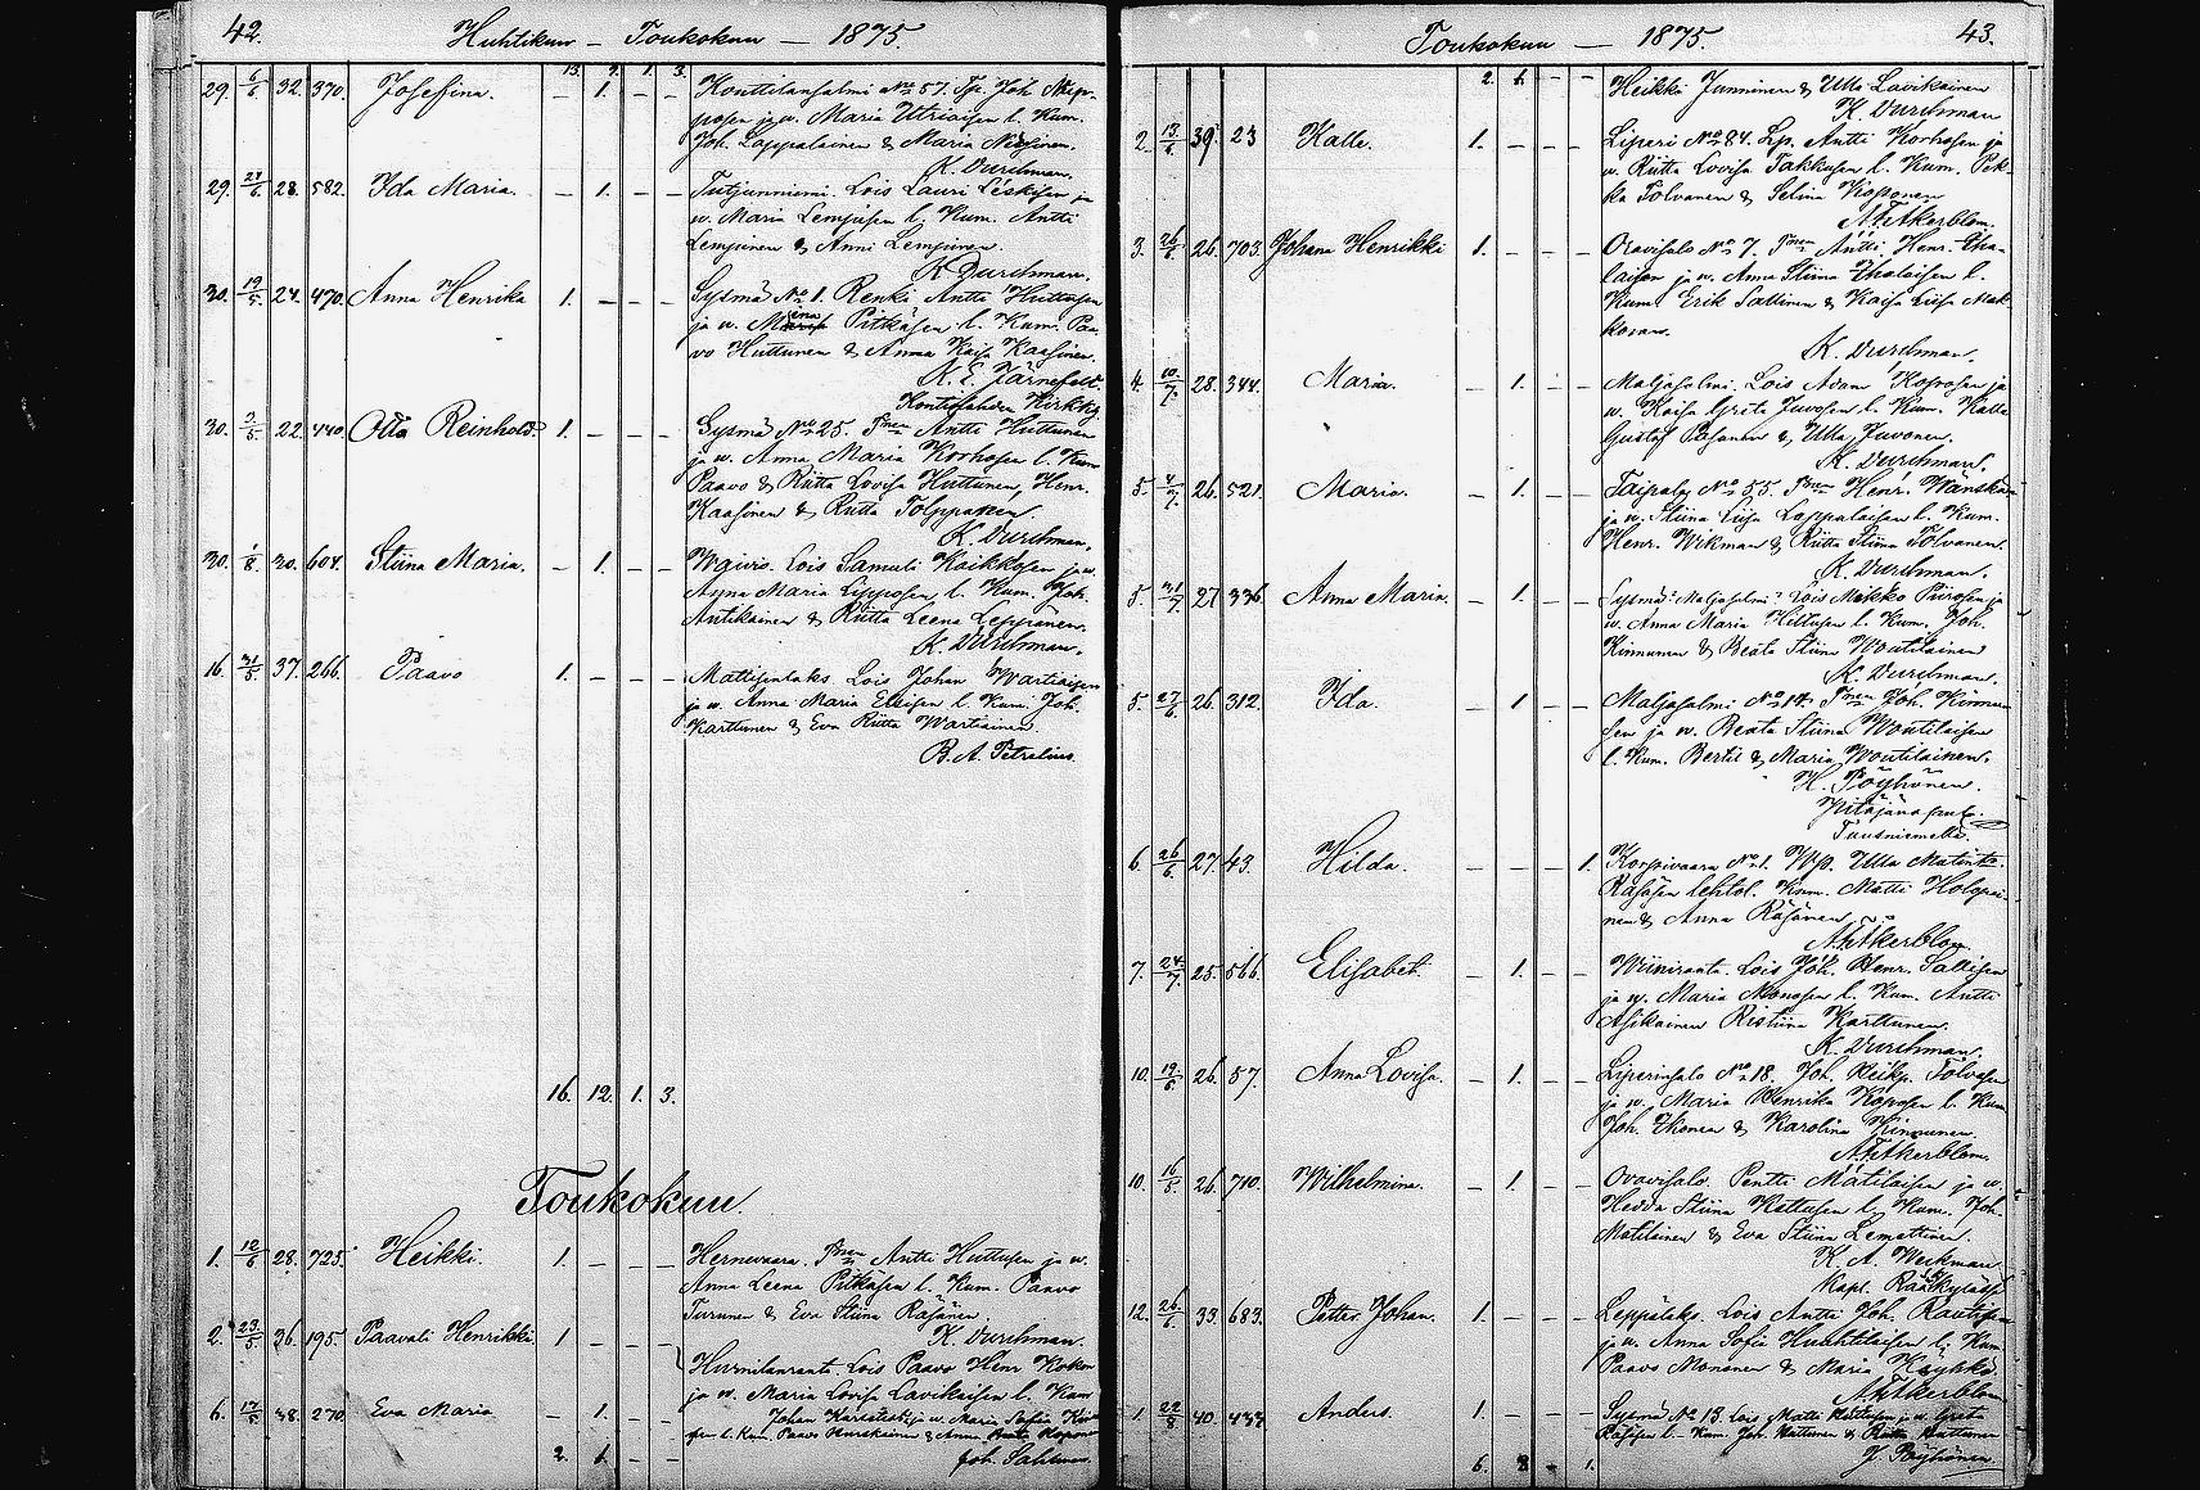 42. Huhtikuu – Toukokuu – 1875.
13. 9. 1. 3.
29. 6/6 32. 370. Josefina. – 1. – – Konttilansalmi No 57. Tp. Joh.
ja w. Maria Utriaisen l. Kum.
Joh. Lappalainen & Maria
K. Durchman.
29. 27/6 28. 582. Ida Maria. – 1. – – Lois Lauri Leskisen ja
w. Maria Lempisen l. Kum. Antti
Lempinen & Anni Lempinen.
K Durchman.
30. 19/5 24. 470. Anna Henrika 1. – – – Sysmä No 1. Renki Antti Huttusen
ja w. Pitkäsen l. Kum. Paa-
vo Huttunen & Anna Kaisa Kaasinen.
K. E. Järnefelt.
Kontiolahden Kirkkh.
30. 3/5 22. 440. Otto Reinhold. 1. – – – Sysmä No 25. Antti Huttunen
ja w. Anna Maria Korhosen l. Kum
Paavo & Riitta Lovisa Huttunen, Henr.
Kaasinen & Riitta Tolppanen.
K. Durchman.
30. 1/8 30. 604. Stiina Maria. – 1. – – Lois Samuli Kaikkosen ja w.
Anna Maria Lipposen l. Kum. Joh.
Antikainen & Riitta Leena Leppänen.
K. Durchman.
16. 31/5 37. 266. Paavo 1. – – – Mattisenlaks Lois Johan Wartiaisen
ja w. Anna Maria l. Kum. Joh.
Karttunen & Eva Riitta Wartiainen.
B. A. Petrelius.
16. 12. 1. 3.
Toukokuu.
1. 12/6 28. 725. Heikki. 1. – – – Hernevaara. Antti Huttusen ja w.
Anna Leena Pitkäsen l. Kum. Paavo
Turunen & Eva Stiina Räsänen
K. Durchman.
2. 23/5 36. 195. Paavali Henrikki. 1 – – –
Lois Paavo Henr Kokon
ja w. Maria Lovisa Lavikaisen l. Kum
6. 17/5 38. 270. Eva Maria – 1. – – Johan ja w. Maria Sofia
l. Kum. Paavo Hurskainen & Anna
2. 1. – – Joh. Sahlman.
Toukokuu – 1875. 43.
2. 1. – – Heikki Junninen & Ulla Lavikainen
K. Durchman
2. 13/6 39. 23 Kalle. 1. – – – Liperi No 84. Lp. Antti Korhosen ja
w. Riitta Lovisa Takkusen l. Kum. Pek-
ka Tolvanen & Selina Kopponen
A. F. Åkerblom.
3. 26/6 26. 703. Johana Henrikki 1. – – – Oravisalo No 7. Antti Henr. Iha-
laisen ja w. Anna Stiina Ihalaisen l.
Kum. Erik Sallinen & Kaisa Liisa Mak-
konen.
K. Durchman.
4. 10./7. 28. 344. Maria. – 1. – – Maljasalmi. Lois Adam Koposen ja
w. Kaisa Greta Juvosen l. Kum. Kalle
Gustaf & Ulla Juvonen.
K. Durchman.
5. 4/7. 26. 521. Maria. – 1. – – Taipale No 55. Henr. Wänskän
ja w. Stiina Liisa Lappalaisen l. Kum.
Henr. Wikman & Riitta Stiina Tolvanen.
K. Durchman.
5. 27 336. Anna Maria. – 1. – – Sysmä: Maljasalmi? Lois Mikko Piirosen ja
w. Anna Maria Hiltusen l. Kum. Joh.
Kinnunen & Beata Stiina Woutilainen
K. Durchman.
5. 27/6 26. 312. Ida. – 1 – – Maljasalmi No 14. Joh. Kinnu-
sen ja w. Beata Stiina Woutilaisen
l. Kum. Bertil & Maria Woutilainen.
H. Pöyhönen.
Pitäjänapul.
Tuusniemellä.
6. 26/6 27. 43. Hilda. – – – 1. Korpivaara No 1. Wp. Ulla Matint.
Räsäsen lehtol. Kum. Matti Holopai-
nen & Anna Räsänen
A. F. Åkerblom.
7. 24/7. 25. 566. Elisabet. – 1. – – Wiiniranta. Lois Joh. Henr. Sallisen
ja w. Maria Monosen l. Kum. Antti
Asikainen Ristiina Karttunen.
K. Durchman.
10. 19./6 26. 57. Anna Lovisa. – 1. – – Liperinsalo No 18. Joh. Heikp. Tolvasen
ja w. Maria Henrika Koposen l. Kum
Joh. Ikonen & Karolina Kinnunen.
A. F. Åkerblom.
10. 16/5 26. 710. Wilhelmina. – 1. – – Oravisalo. Pentti Matilaisen ja w.
Hedda Stiina Kettusen l. Kum. Joh.
Matilainen & Eva Stiina Lemattinen.
K. A. Weckman
Kapl. Rääkkylässä
12. 26./6 33. 683. Petter Johan. 1. – – – Leppälaks. Lois Antti Joh. Rautisen
ja w. Anna Sofia Huuhtilaisen l. Kum
Paavo Mononen & Maria Käyhkö.
A. F. Åkerblom
1. 22/8 40. 433 Anders. 1. – – – Sysmä No 13. Lois Matti Huttusen ja w. Greta
Räsäsen l. – Kum. Joh. Huttunen & Riitta Huttunen
6. 8 – 1. J. Pöyhönen.